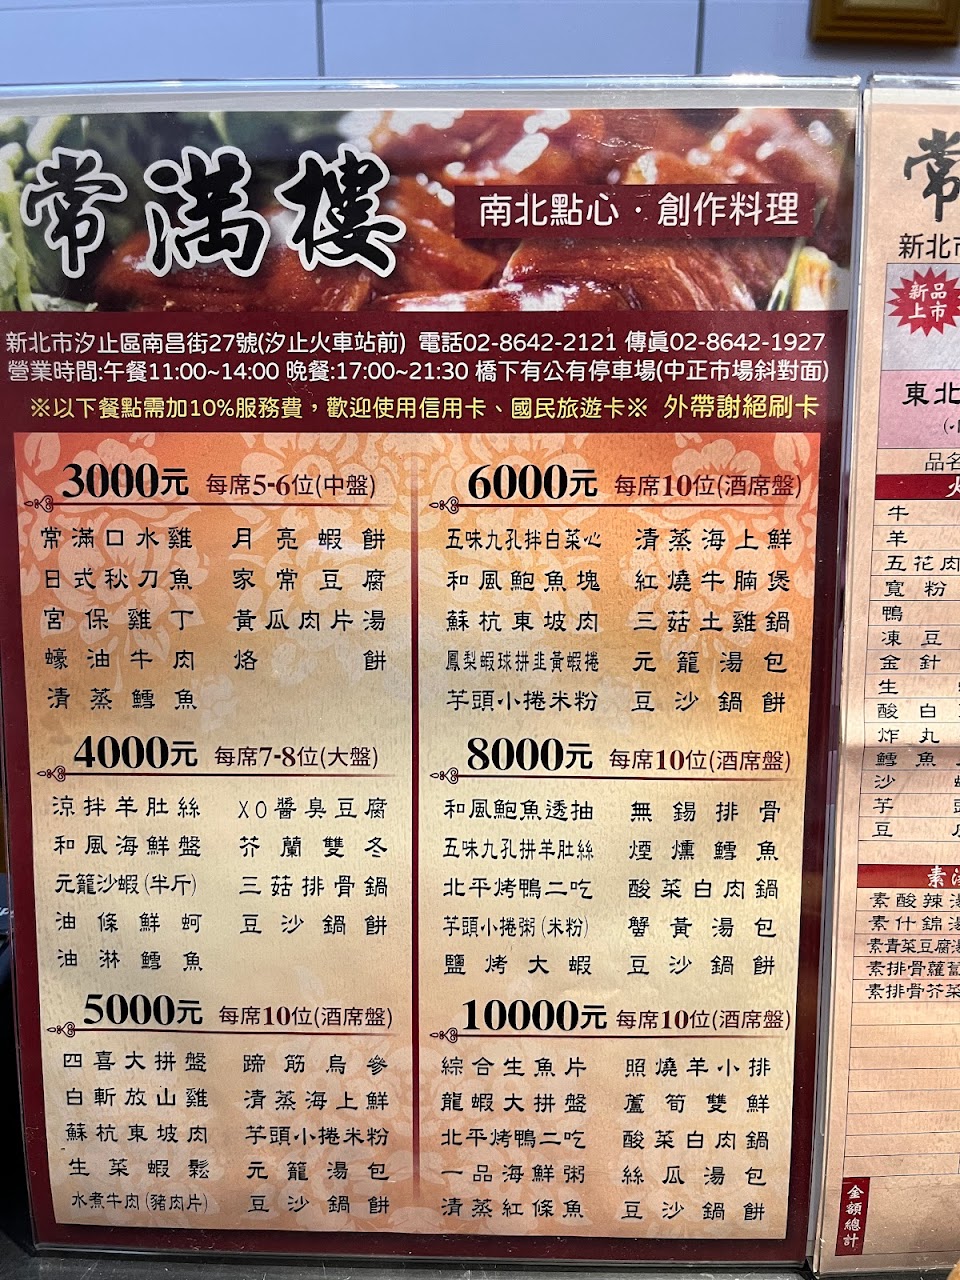 常滿樓
南北點心·創作料理
新北市汐止區南昌街27號(汐止火車站前) 電話02-8642-2121 傳真02-8642-1927
營業時間:午餐11:00~14:00 晚餐:17:00~21:30 橋下有公有停車場(中正市場斜對面)
※以下餐點需加10%服務費，歡迎使用信用卡、國民旅遊卡※ 外帶謝絕刷卡
3000元 每席5-6位(中盤)
常滿口水雞 月亮蝦餅
日式秋刀魚 家常豆腐
宮保雞丁 黃瓜肉片湯
蠔油牛肉 烙餅
清蒸鱈魚
6000元 每席10位(酒席盤)
五味九孔拌白菜心 清蒸海上鮮
和風鮑魚塊 紅燒牛腩煲
蘇杭東坡肉 三菇土雞鍋
鳳梨蝦球拼韭黃蝦捲 元籠湯包
芋頭小捲米粉 豆沙鍋餅
4000元 每席7-8位(大盤)
涼拌羊肚絲 XO醬臭豆腐
和風海鮮盤 芥蘭雙冬
元籠沙蝦(半斤) 三菇排骨鍋
油條鮮蚵 豆沙鍋餅
油淋鱈魚
8000元 每席10位(酒席盤)
和風鮑魚透抽 無錫排骨
五味九孔拼羊肚絲 煙燻鱈魚
北平烤鴨二吃 酸菜白肉鍋
芋頭小捲粥(米粉) 蟹黃湯包
鹽烤大蝦 豆沙鍋餅
5000元 每席10位(酒席盤)
四喜大拼盤 蹄筋烏參
白斬放山雞 清蒸海上鮮
蘇杭東坡肉 芋頭小捲米粉
生菜蝦鬆 元籠湯包
水煮牛肉(豬肉片) 豆沙鍋餅
10000元 每席10位(酒席盤)
綜合生魚片 照燒羊小排
龍蝦大拼盤 蘆筍雙鮮
北平烤鴨二吃 酸菜白肉鍋
一品海鮮粥 絲瓜湯包
清蒸紅條魚 豆沙鍋餅
常
新北市
新品
上市
東北
品名
牛
羊
五花肉
寬粉
鴨
凍豆
金針
生
酸白
炸丸
鱈魚
沙
芋
豆
素
素酸辣湯
素什錦湯
素青菜豆腐湯
素排骨蘿蔔
素排骨芥菜
金額總計